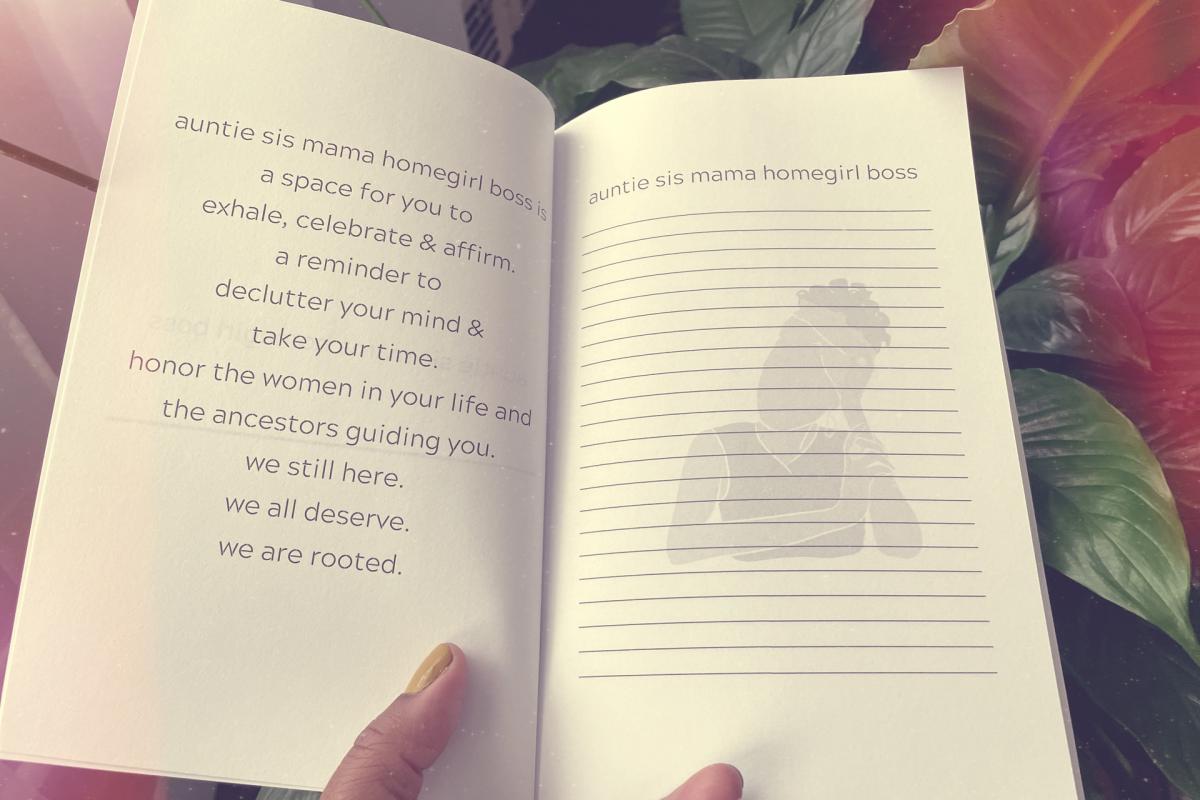 auntie sis mama homegirl boss is
a space for you to
exhale, celebrate & affirm.
a reminder to
declutter your mind &
take your time.
honor the women in your life and
the ancestors guiding you.
we still here.
we all deserve.
we are rooted.
auntie sis mama homegirl boss